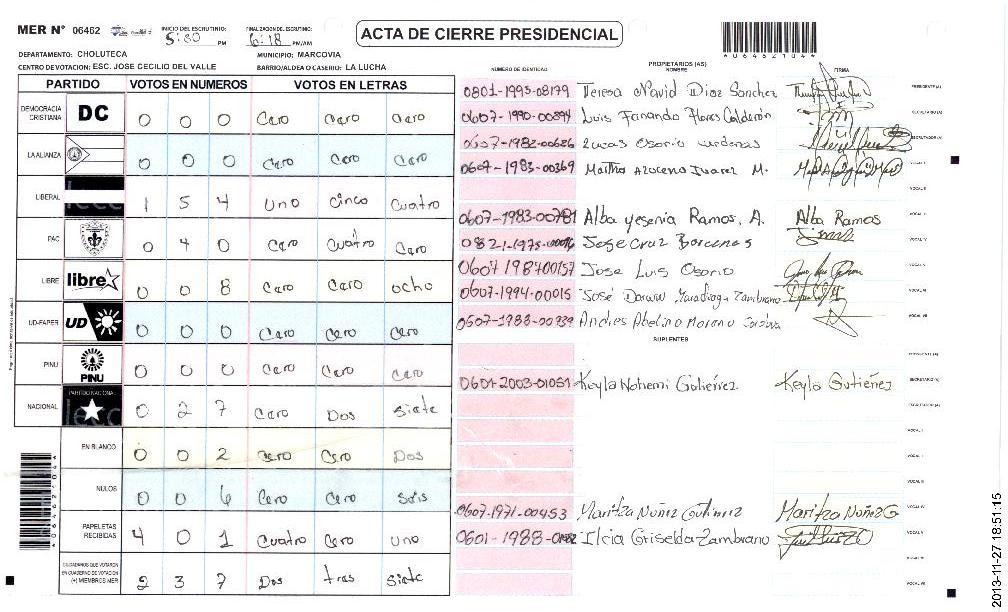 MER Nº 06462 INICIO DEL ESCRUTINIO: 5:00 PM FINALIZACION DEL ESCRUTINIO: 6:18 PM/AM
ACTA DE CIERRE PRESIDENCIAL
*06462104*
DEPARTAMENTO: CHOLUTECA MUNICIPIO: MARCOVIA
CENTRO DE VOTACION: ESC. JOSE CECILIO DEL VALLE BARRIO/ALDEA O CASERIO: LA LUCHA
PARTIDO VOTOS EN NUMEROS VOTOS EN LETRAS
DEMOCRACIA CRISTIANA DC 0 0 0 Cero Cero Cero
LA ALIANZA 0 0 0 Cero Cero Cero
LIBERAL 1 5 4 Uno Cinco Cuatro
PAC 0 4 0 Cero Cuatro Cero
LIBRE libre 0 0 8 Cero Cero ocho
UD-FAPER UD 0 0 0 Cero Cero Cero
PINU PINU 0 0 0 Cero Cero Cero
NACIONAL PARTIDO NACIONAL 0 2 7 Cero Dos Siete
EN BLANCO 0 0 2 Cero Cero Dos
NULOS 0 0 6 Cero Cero Seis
PAPELETAS RECIBIDAS 4 0 1 Cuatro Cero Uno
CIUDADANOS QUE VOTARON EN CUADERNO DE VOTACION (+) MIEMBROS MER 2 3 7 Dos tres Siete
*06462104*
PROPIETARIOS (AS)
NUMERO DE IDENTIDAD NOMBRE FIRMA
0801-1993-08179 Teresa Navid Diaz Sanchez PRESIDENTE (A)
0607-1990-00894 Luis Fernando Flores Calderón SECRETARIO (A)
0607-1982-00686 Lucas Osorio Cardenas ESCRUTADOR (A)
0607-1983-00369 Martha Azucena Juarez M. VOCAL I
VOCAL II
0607-1983-00781 Alba yesenia Ramos. A. Alba Ramos VOCAL III
0821-1975-00096 Jose Cruz Barcenas VOCAL IV
0607 1984 00157 Jose Luis Osorio VOCAL V
0607-1994-00015 José Darwin Maradiaga Zambrano VOCAL VI
0607-1988-00939 Andres Abelino Moreno VOCAL VII
SUPLENTES
PRESIDENTE (A)
0601-2003-01051 Keyla Nohemi Gutiérrez Keyla Gutiérrez SECRETARIO (A)
ESCRUTADOR (A)
VOCAL I
VOCAL II
VOCAL III
0607-1971-00453 Maritza Nuñez Gutierrez Maritza Nuñez G VOCAL IV
0601-1988- Ilcia Griselda Zambrano VOCAL V
VOCAL VI
VOCAL VII
2013-11-27 18:51:15